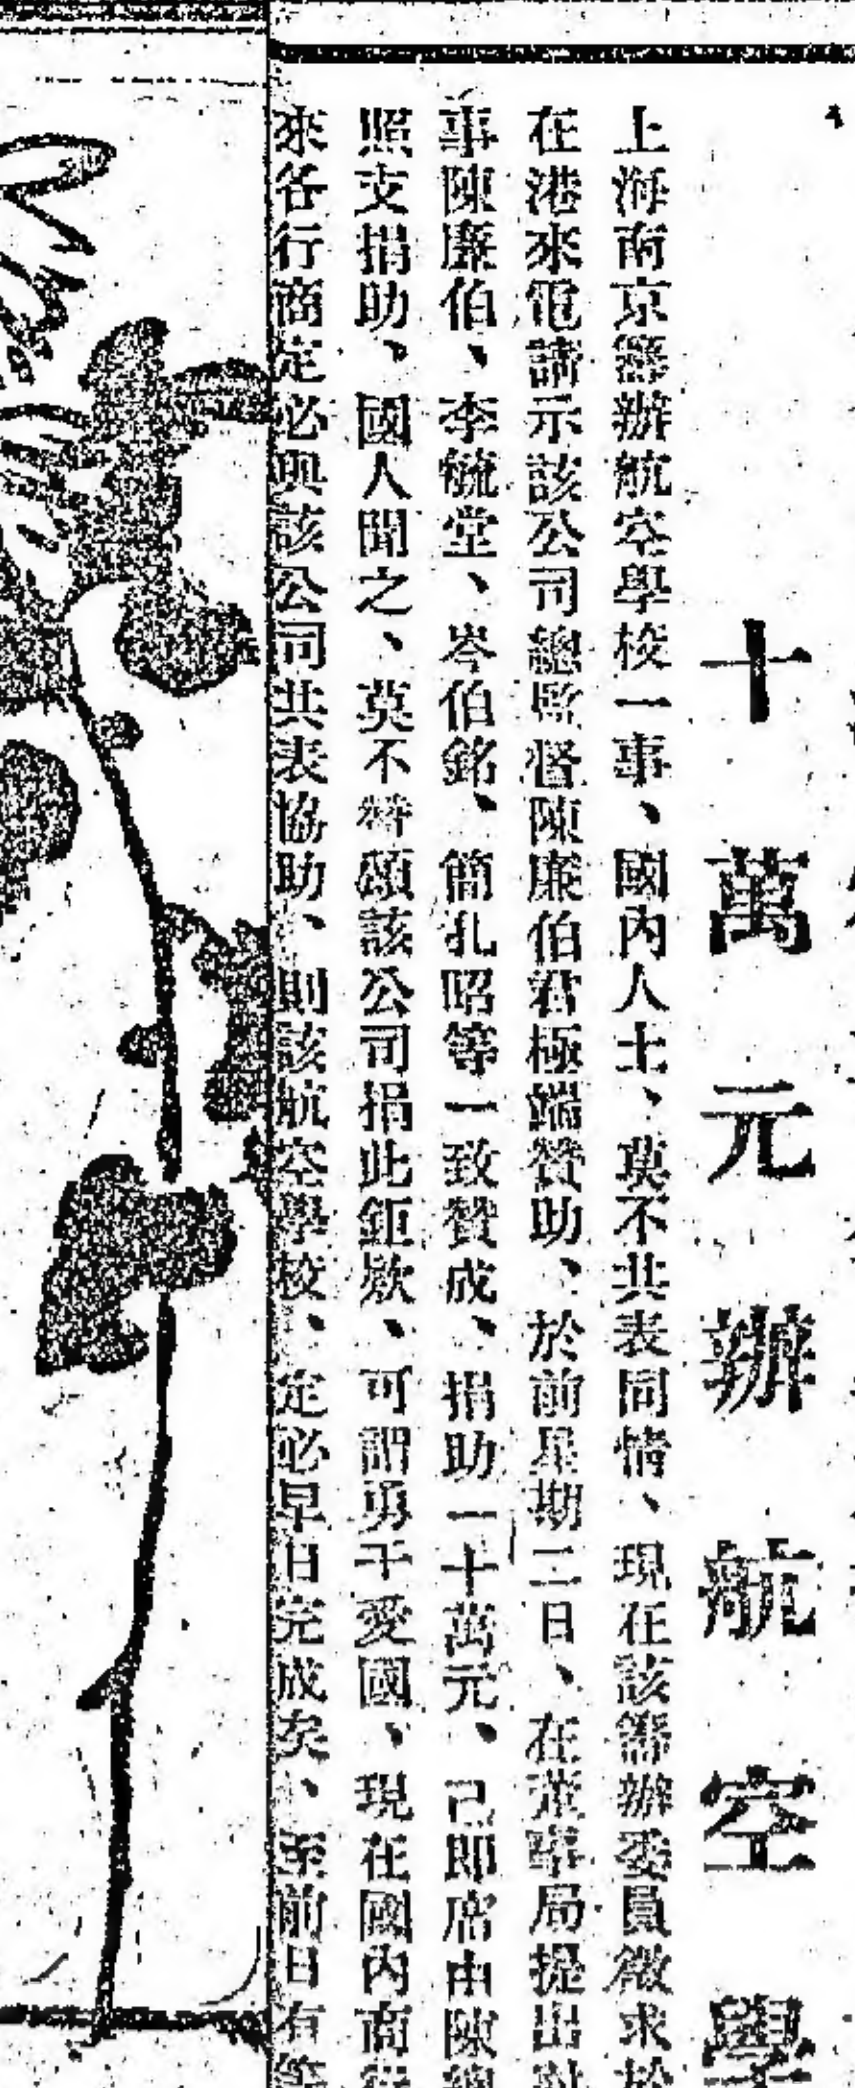 十萬元辦航空學
上海南京籌辦航空學校一事、國內人士、莫不共表同情、現在該籌辦委員徵求於
在港來電請示該公司總監督陳廉伯君極端贊助、於前星期二日、在董事局提出討
事陳廉伯、李毓堂、岑伯銘、簡孔昭等一致贊成、捐助一十萬元、已即席由陳總
照支捐助、國人聞之、莫不特頌該公司捐此鉅欵、可謂勇于愛國、現在國內商
來各行商定必與該公司共表協助、則該航空學校、定必早日完成矣、至前日有等